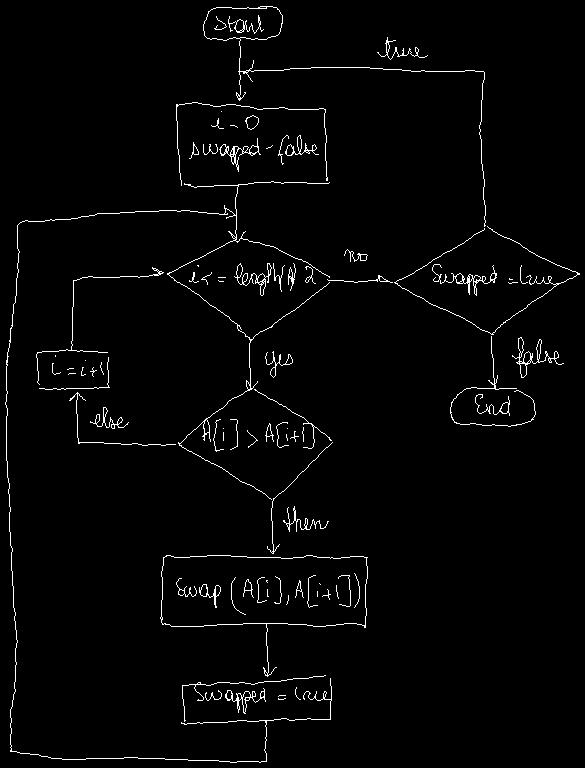 Start
true
i = 0
swapped = false
i <= length(A) 2
no
Swapped = true
i = i+1
yes
false
else
A[i] > A[i+1]
End
then
Swap (A[i], A[i+1])
Swapped = true